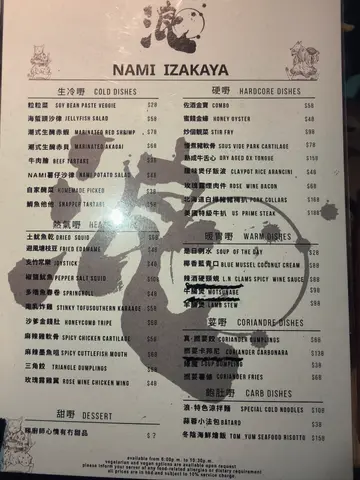 浪
NAMI IZAKAYA
生冷嘢 COLD DISHES
粒粒菜 SOY BEAN PASTE VEGGIE $28
海蜇頭沙律 JELLYFISH SALAD $58
潮式生醃赤蝦 MARINATED RED SHRIMP $78
潮式生醃赤貝 MARINATED AKAGAI
牛肉膾 BEEF TARTARE
NAMI薯仔沙律 NAMI POTATO SALAD
自家醃菜 HOMEMADE PICKED
鯛魚他他 SNAPPER TARTARE
熱氣嘢
土魷魚乾 DRIED SQUID
避風塘枝豆 FRIED EDAMAME
JOYSTICK
椒鹽魷魚 PEPPER SALT SQUID
多隆魚春卷 SPRINGROLL $48
STINKY TOFUSOUTHERN KARAAGE $88
沙爹金錢肚 HONEYCOMB TRIPE $68
麻辣雞軟骨 SPICY CHICKEN CARTILAG $58
麻辣墨魚咀 SPICY CUTTLEFISH MOUTH $68
三角餃 TRIANGLE DUMPLINGS $68
玫瑰露雞翼 ROSE WINE CHICKEN WING $48
甜嘢 DESSERT
睇廚師心情有冇甜品 $ ?
硬嘢 HARDCORE DISHES
佐酒金寶 COMBO $58
蜜餞金蠔 HONEY OYSTER $48
炒個靚菜 STIR FRY $58
慢煮豬軟骨 SOUS VIDE PARK CARTILAGE $78
熟成牛舌心 DRY AGED OX TONGUE $158
臘味煲仔飯渣 CLAYPOT RICE ARANCINI $48
玫瑰露煙肉件 ROSE WINE BACON $68
PORK COLLAR $188
美國特級牛扒 US PRIME STEAK $188
暖胃嘢 WARM DISHES
是日例水 SOUP OF THE DAY $28
陽春藍青口 BLUE MUSSEL COCONUT CREAM $88
辣酒硬頸蜆 L.N CLAMS SPICY WINE SAUCE $88
MOTSUNABE $98
羊腩煲 LAMB STEW $98
莞嘢 CORIANDRE DISHES
CORIANDER DUMPLING $38
芫荽卡邦尼 CORIANDER CARBONARA $138
SOUP DUMPLING $38
芫荽薯條 CORIANDER FRIES $68
飽肚嘢 CARB DISHES
浪·特色涼拌麵 SPECIAL COLD NOODLES $108
蒜蓉小法包 BATARD $38
冬陰海鮮燴飯 TOM YUM SEAFOOD RISOTTO $158
vegetarian and vegan options are available upon request
please inform your server of any food-related allergies or dietary requirement
all prices are in hkd and subject to 10% service charge